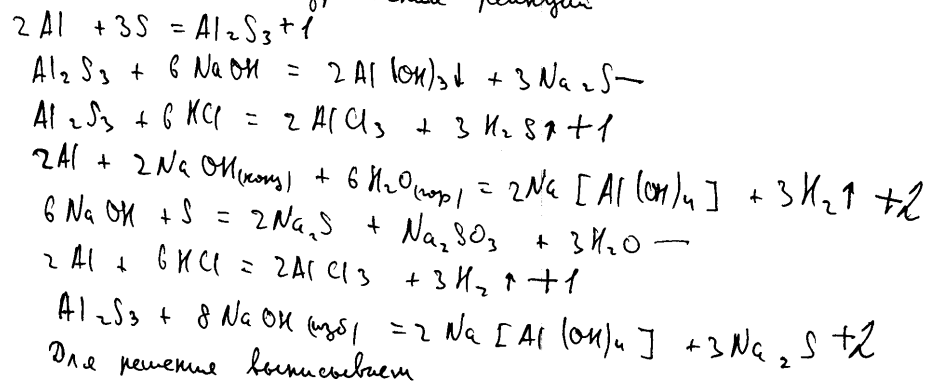 реакций
2Al + 3S = Al₂S₃ +1
Al₂S₃ + 6NaOH = 2Al(OH)₃↓ + 3Na₂S —
Al₂S₃ + 6HCl = 2AlCl₃ + 3H₂S↑ +1
2Al + 2NaOH(конц) + 6H₂O(гор) = 2Na[Al(OH)₄] + 3H₂↑ +2
6NaOH + S = 2Na₂S + Na₂SO₃ + 3H₂O —
2Al + 6HCl = 2AlCl₃ + 3H₂↑ +1
Al₂S₃ + 8NaOH(изб) = 2Na[Al(OH)₄] + 3Na₂S +2
Для решения выписываем